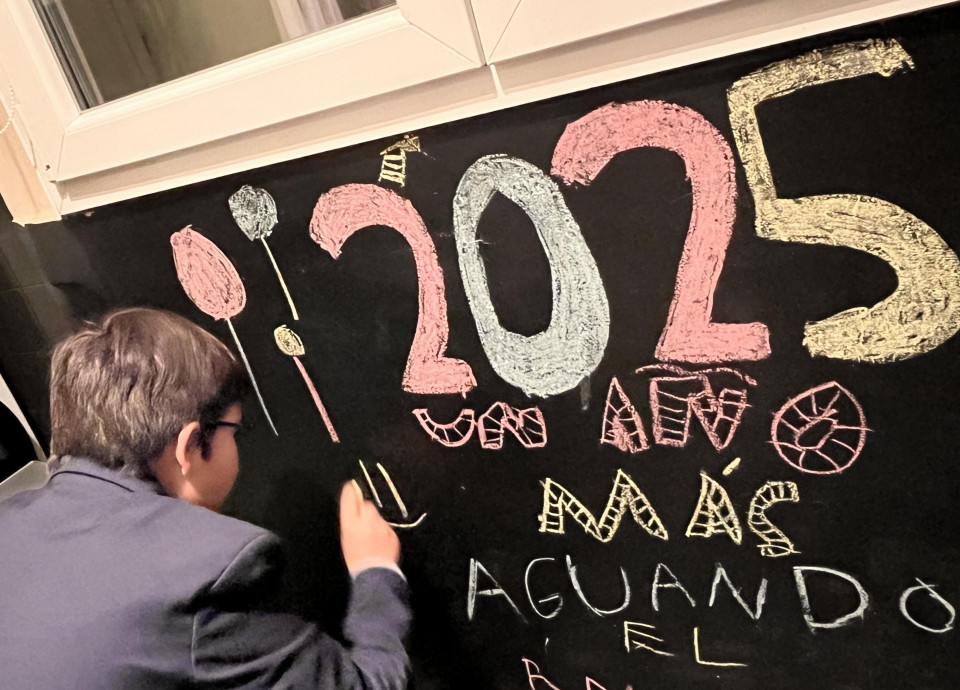 2025
UN AÑO
MÁS
AGUANDO
EL